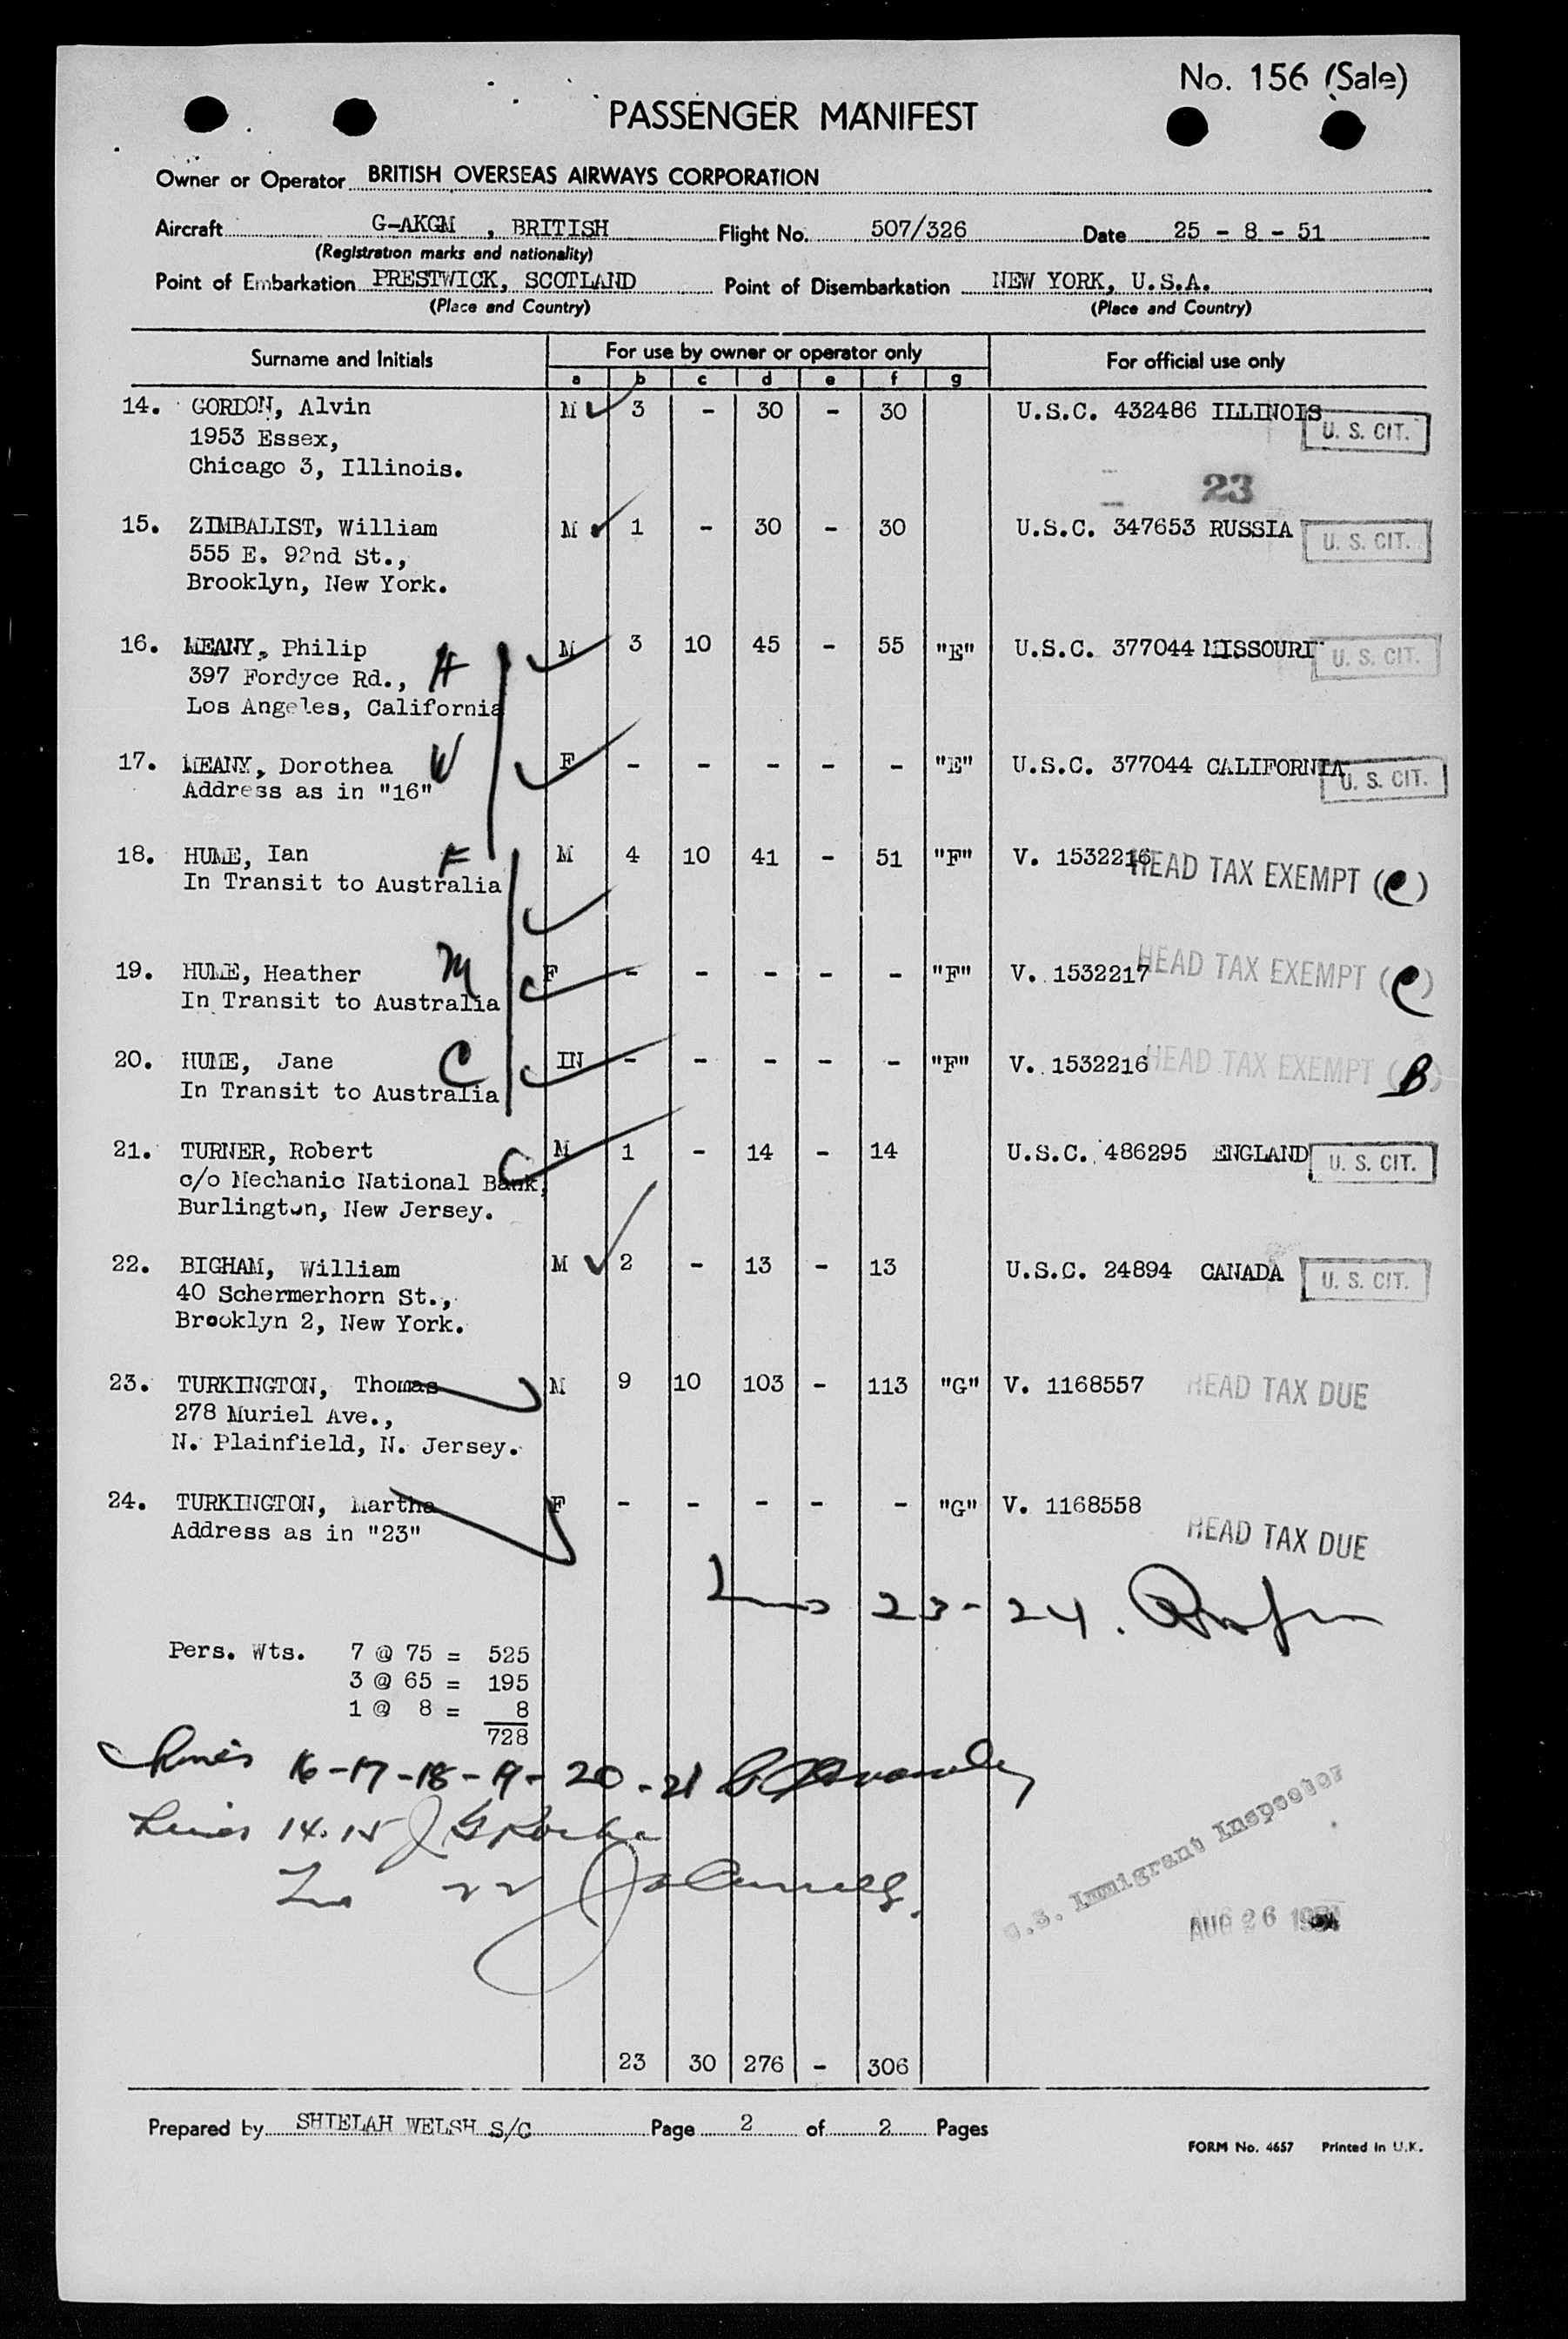 No. 156 (Sale)
PASSENGER MANIFEST
Owner or Operator BRITISH OVERSEAS AIRWAYS CORPORATION
Aircraft G-AKGM , BRITISH Flight No. 507/326 Date 25 - 8 - 51
(Registration marks and nationality)
Point of Embarkation PRESTWICK, SCOTLAND Point of Disembarkation NEW YORK, U.S.A.
(Place and Country) (Place and Country)
Surname and Initials For use by owner or operator only For official use only
a b c d e f g
14. GORDON, Alvin M 3 - 30 - 30 U.S.C. 432486 ILLINOIS
1953 Essex, U. S. CIT.
Chicago 3, Illinois.
23
15. ZIMBALIST, William M 1 - 30 - 30 U.S.C. 347653 RUSSIA U. S. CIT.
555 E. 92nd St.,
Brooklyn, New York.
16. MEANY, Philip M 3 10 45 - 55 "E" U.S.C. 377044 MISSOURI U. S. CIT.
397 Fordyce Rd., H
Los Angeles, California
17. MEANY, Dorothea W F - - - - - "E" U.S.C. 377044 CALIFORNIA U. S. CIT.
Address as in "16"
18. HUME, Ian F M 4 10 41 - 51 "F" V. 1532216 HEAD TAX EXEMPT (C)
In Transit to Australia
19. HUME, Heather M F - - - - - "F" V. 1532217 HEAD TAX EXEMPT (C)
In Transit to Australia
20. HUME, Jane C IN - - - - - "F" V. 1532216 HEAD TAX EXEMPT (B)
In Transit to Australia
21. TURNER, Robert M 1 - 14 - 14 U.S.C. 486295 ENGLAND U. S. CIT.
c/o Mechanic National Bank,
Burlington, New Jersey.
22. BIGHAM, William M 2 - 13 - 13 U.S.C. 24894 CANADA U. S. CIT.
40 Schermerhorn St.,
Brooklyn 2, New York.
23. TURKINGTON, Thomas M 9 10 103 - 113 "G" V. 1168557 HEAD TAX DUE
278 Muriel Ave.,
N. Plainfield, N. Jersey.
24. TURKINGTON, Martha F - - - - - "G" V. 1168558
Address as in "23" HEAD TAX DUE
23-24.
Pers. Wts. 7 @ 75 = 525
3 @ 65 = 195
1 @ 8 = 8
728
Lines 16-17-18-19-20-21
Lines 14.15
22
U.S. Immigrant Inspector
AUG 26 1951
23 30 276 - 306
Prepared by SHIELAH WELSH S/C Page 2 of 2 Pages
FORM No. 4657 Printed in U.K.